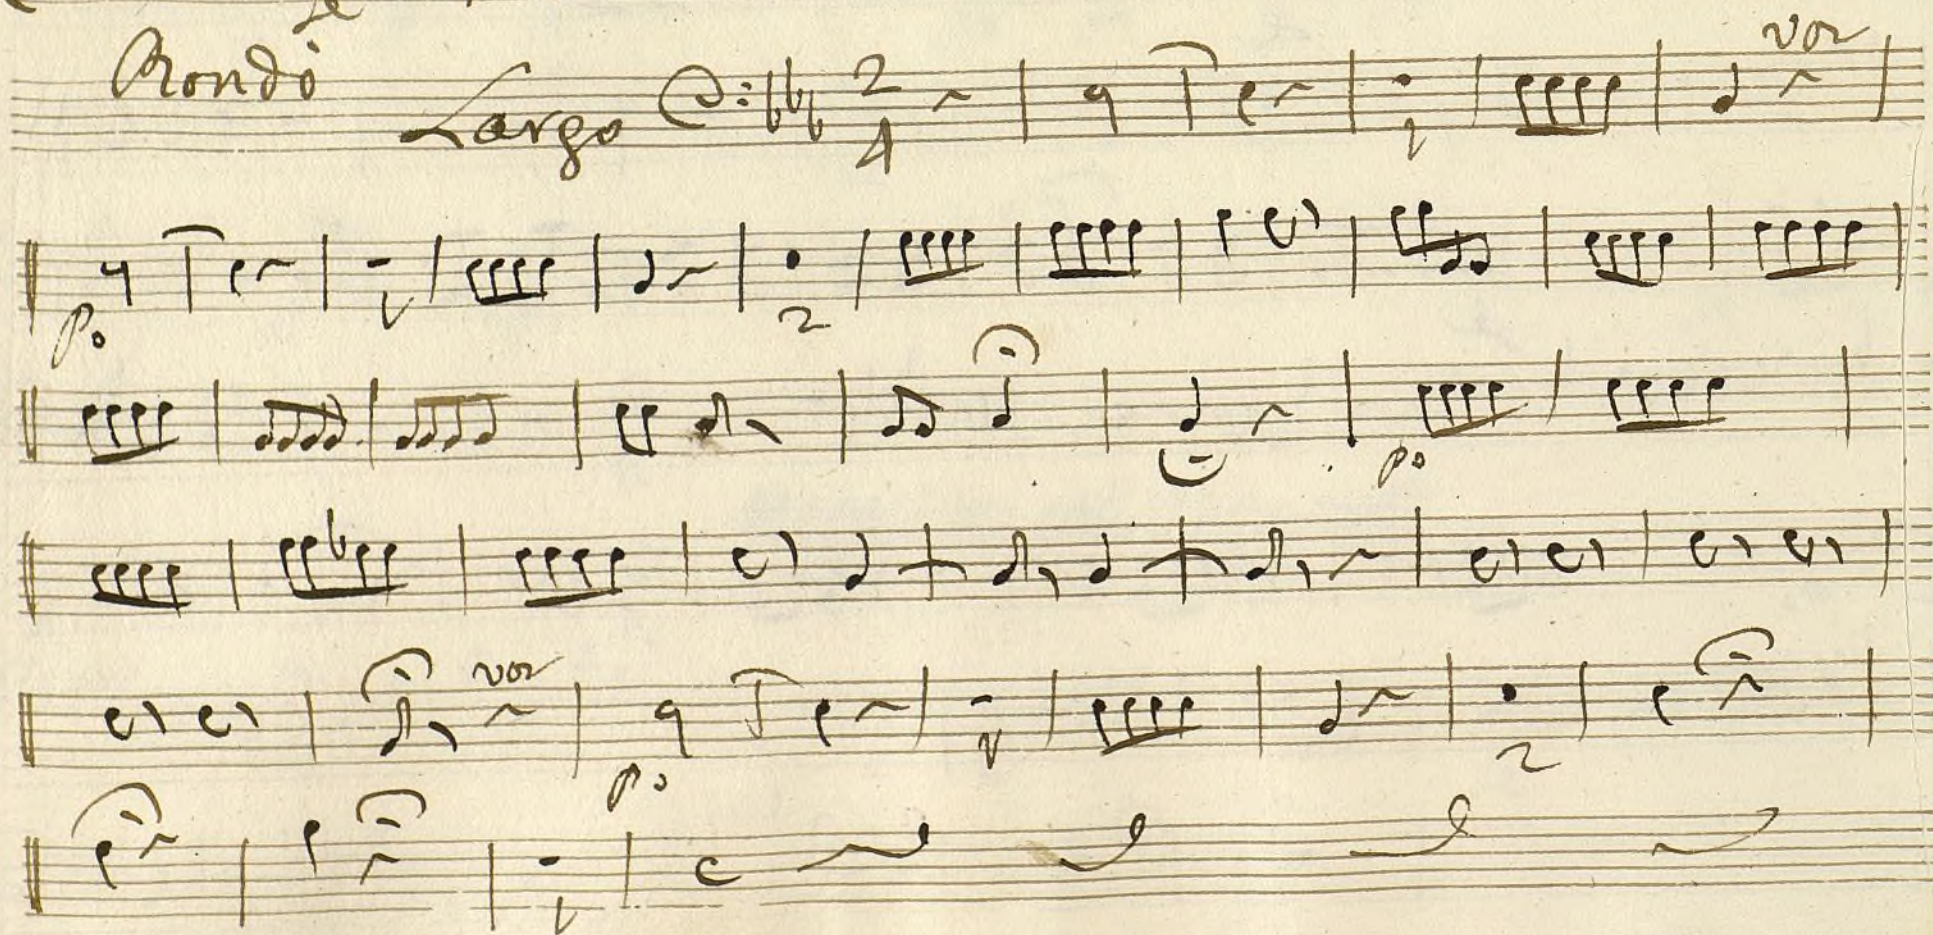 Rondò
Largo 2/4 vor
1
po
1 2
po
vor
po
1 2
1 C